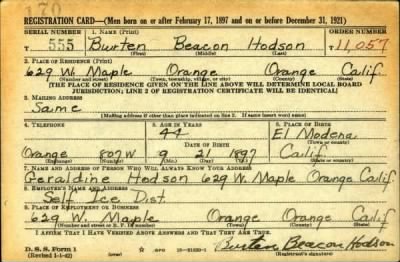 170
REGISTRATION CARD—(Men born on or after February 17, 1897 and on or before December 31, 1921)
SERIAL NUMBER 1. NAME (Print) ORDER NUMBER
T 555 Burten Beacon Hodson T11,057
(First) (Middle) (Last)
2. PLACE OF RESIDENCE (Print)
629 W. Maple Orange Orange Calif.
(Number and street) (Town, township, village, or city) (County) (State)
[THE PLACE OF RESIDENCE GIVEN ON THE LINE ABOVE WILL DETERMINE LOCAL BOARD
JURISDICTION; LINE 2 OF REGISTRATION CERTIFICATE WILL BE IDENTICAL]
3. MAILING ADDRESS
Same
[Mailing address if other than place indicated on line 2. If same insert word same]
4. TELEPHONE 5. AGE IN YEARS 6. PLACE OF BIRTH
44 El Modena
DATE OF BIRTH (Town or county)
Orange 807W 9 21 1897 Calif.
(Exchange) (Number) (Mo.) (Day) (Yr.) (State or country)
7. NAME AND ADDRESS OF PERSON WHO WILL ALWAYS KNOW YOUR ADDRESS
Geraldine Hodson 629 W. Maple Orange Calif
8. EMPLOYER'S NAME AND ADDRESS
Self Ice Dist.
9. PLACE OF EMPLOYMENT OR BUSINESS
629 W. Maple Orange Orange Calif
(Number and street or R. F. D. number) (Town) (County) (State)
I AFFIRM THAT I HAVE VERIFIED ABOVE ANSWERS AND THAT THEY ARE TRUE.
D. S. S. Form 1
(Revised 1-1-42) GPO Burten Beacon Hodson
(Registrant's signature)